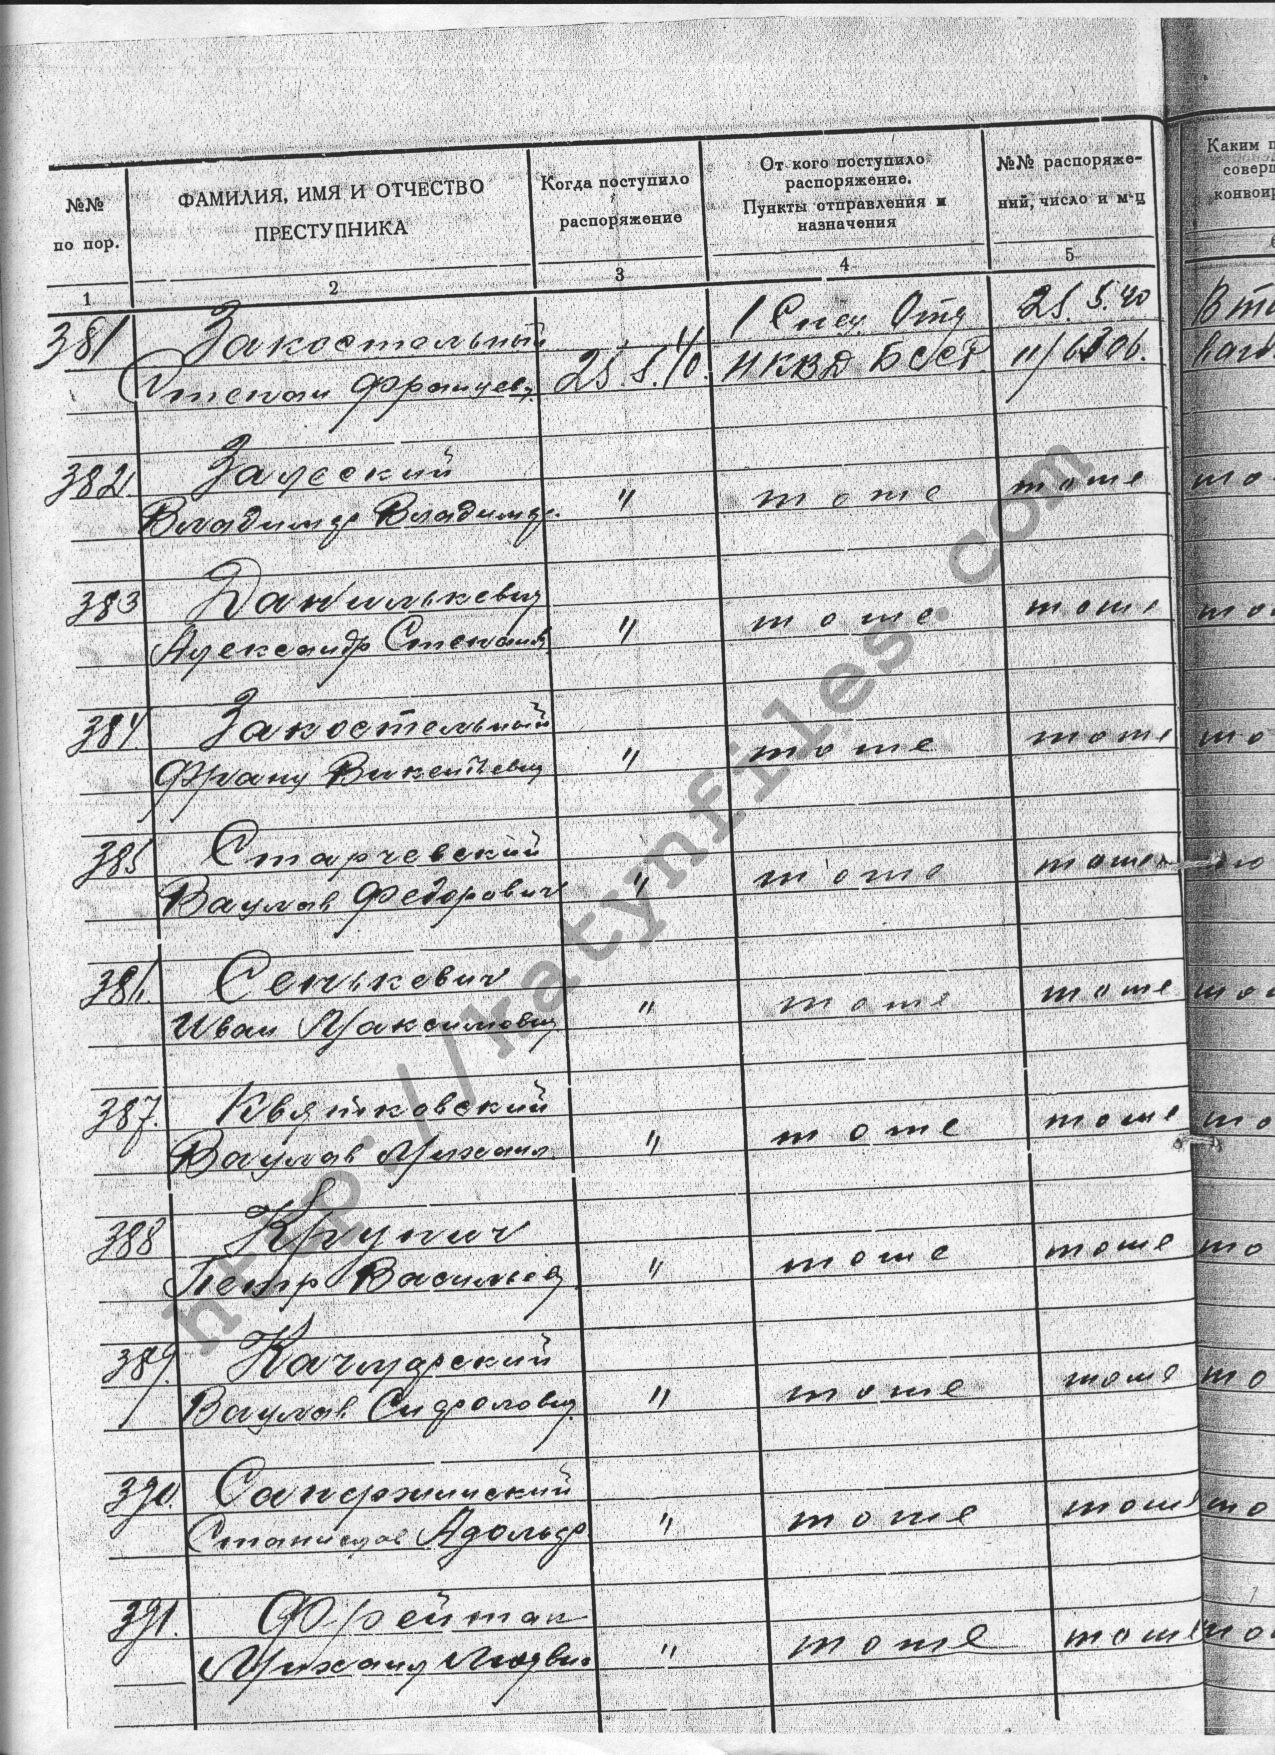 №№
по пор.
ФАМИЛИЯ, ИМЯ И ОТЧЕСТВО
ПРЕСТУПНИКА
Когда поступило
распоряжение
От кого поступило
распоряжение.
Пункты отправления и
назначения
№№ распоряже-
ний, число и м-ц
Каким п
соверш
конвоир
1
2
3
4
5
6
381
Закостельный
1 Спец Отд
25.5.40
Вт
Степан Францев.
25.5.40.
НКВД БССР
382.
Залеский
Владимир Владимир.
"
то же
то же
то
383
Данилькевич
Александр Степанов.
"
то же
то же
то
384.
Закостельный
Франц Викентьевич
"
то же
то же
то
385
Старчевский
Вацлав Федорович
"
то же
то же
то
386.
Сенькевич
Иван Максимович
"
то же
то же
то
387.
Квятковский
Вацлав Михаил.
"
то же
то же
то
388
Крупич
Петр Васильев.
"
то же
то же
то
389.
Качмарский
Вацлав
"
то же
то же
то
390.
Станислав Адольф.
"
то же
то же
то
391.
Фрейтак
Михаил Людвиг.
"
то же
то же
то
http://katynfiles.com